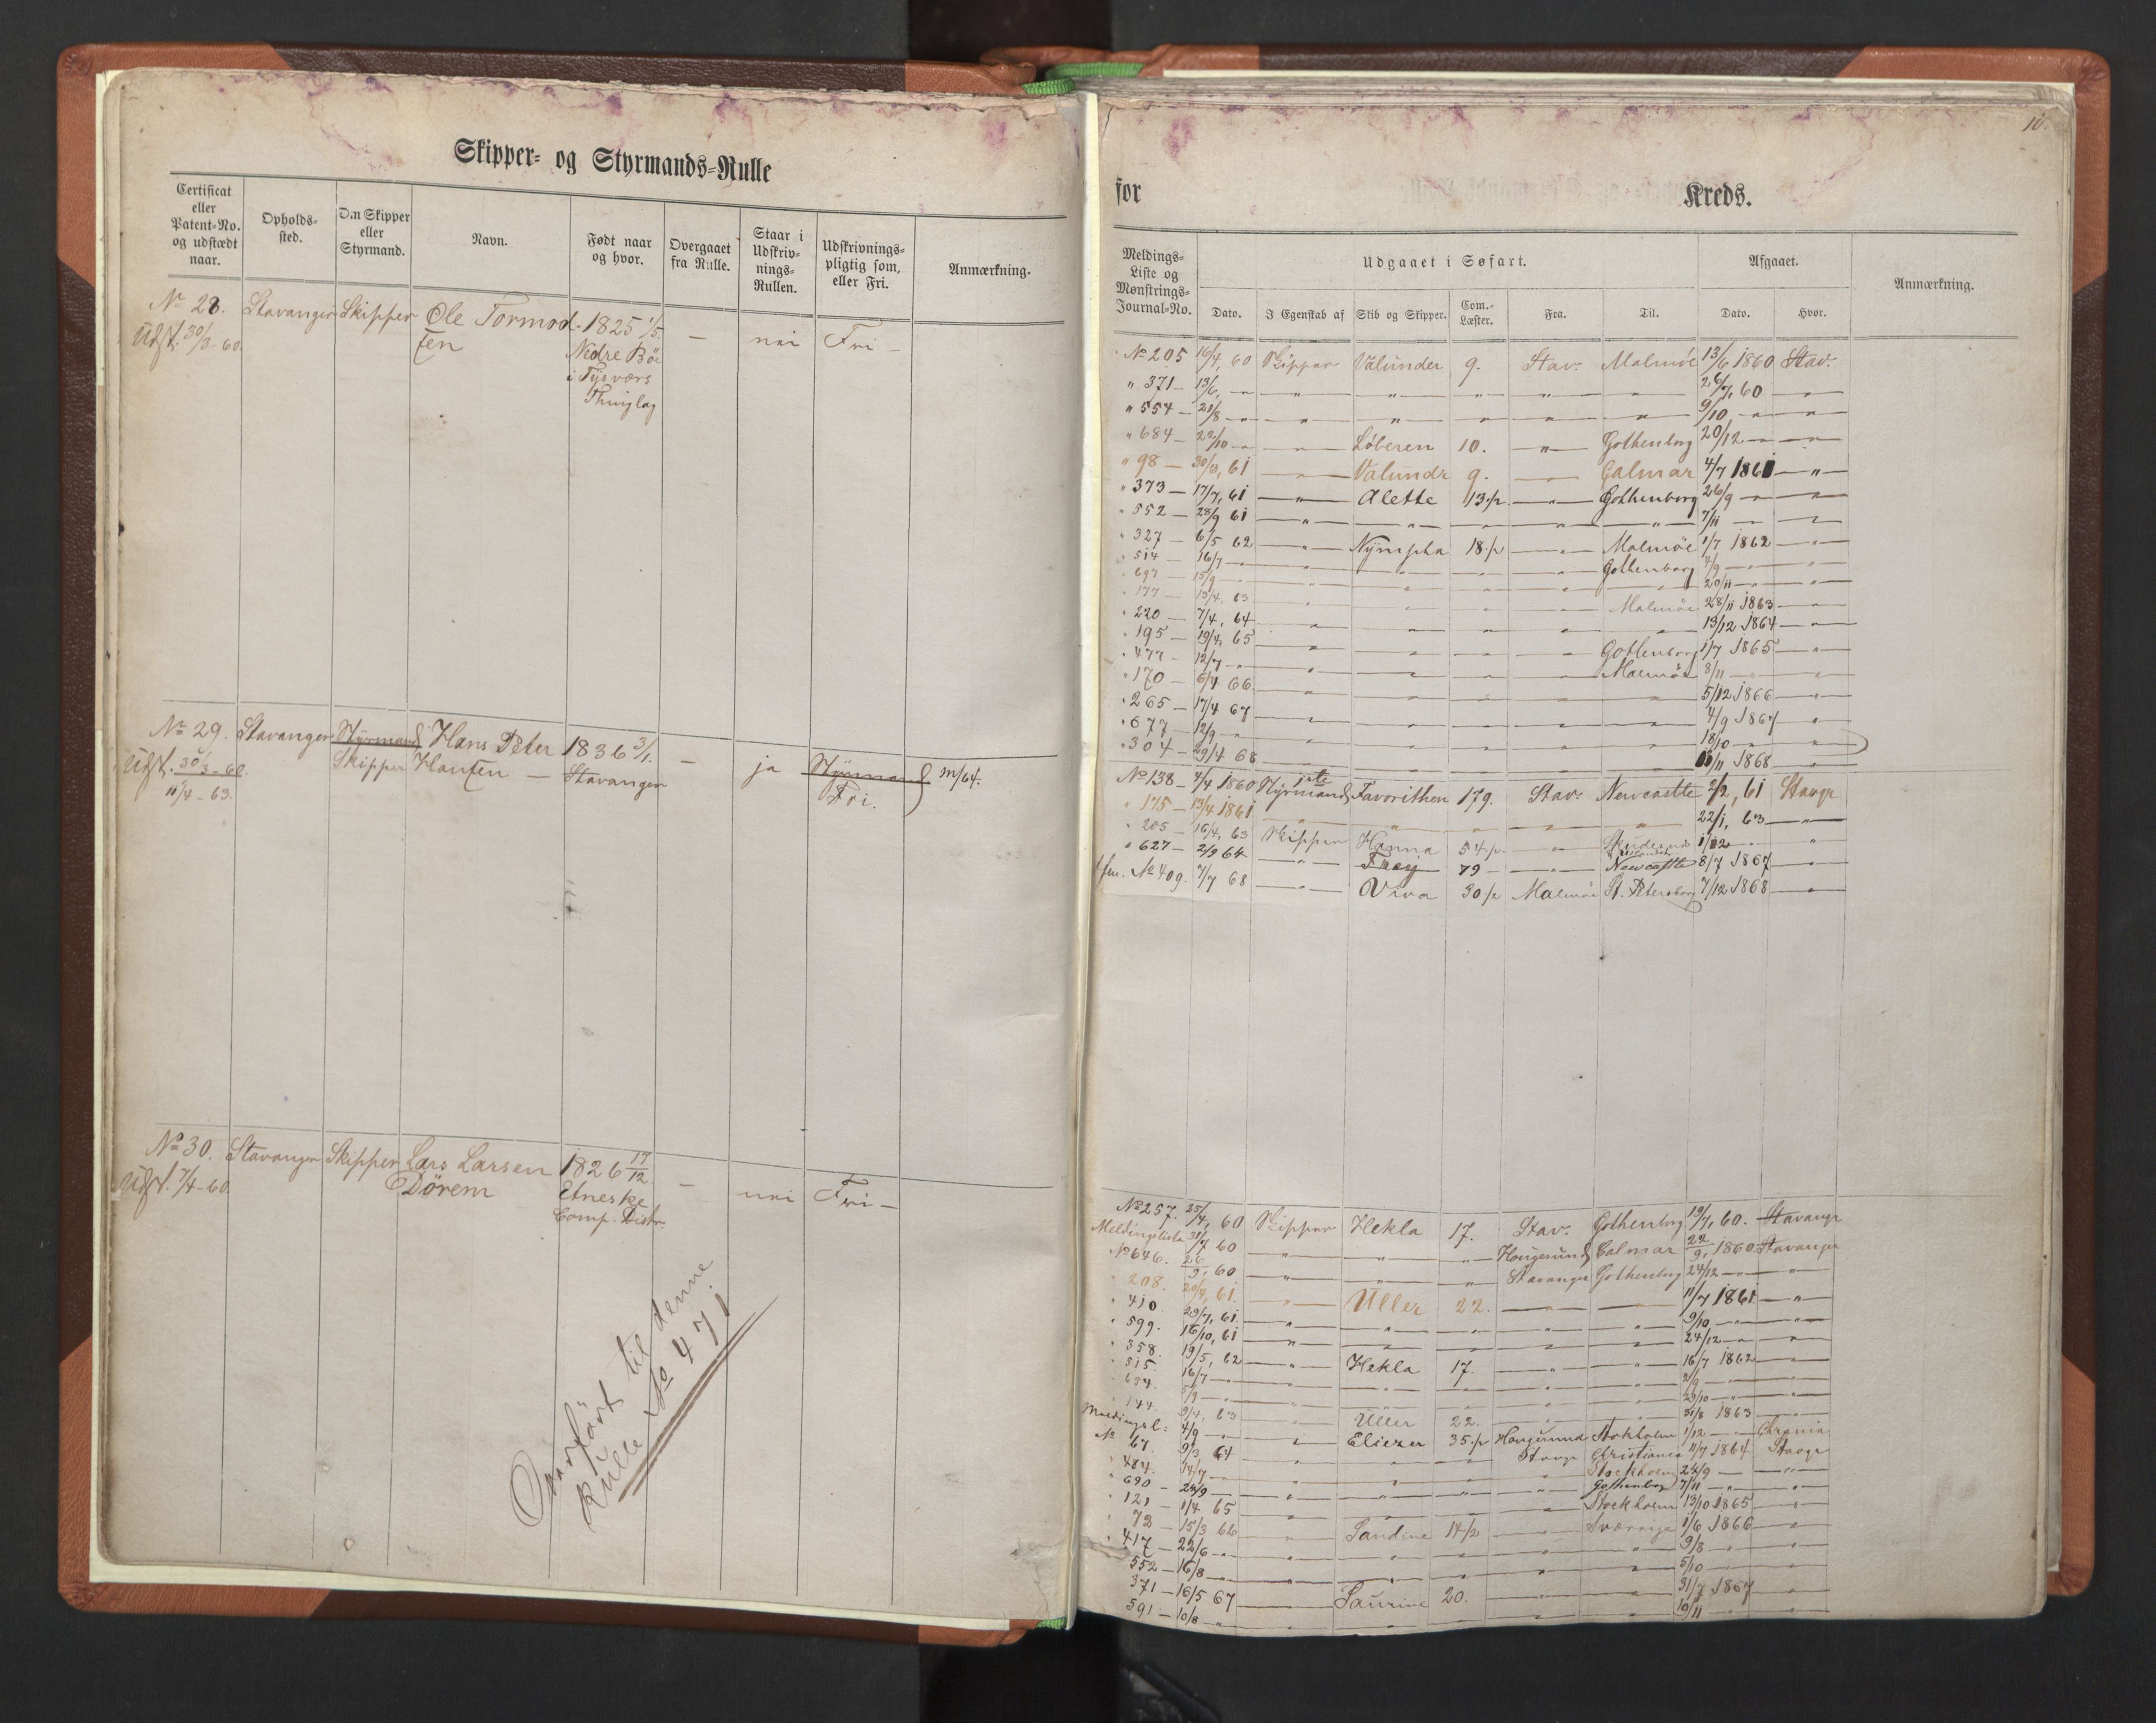 Skipper- og Styrmands-Rulle
Certificat eller Patent-No. og udstædt naar.
Opholds-sted.
Om Skipper eller Styrmand.
Navn.
Født naar og hvor.
Overgaaet fra Rulle.
Staar i Udskriv-nings-Rullen.
Udskrivnings-pligtig som, eller Fri.
Anmærkning.
No 28. Stavanger Skipper Ole Tormod- 1825 1/5. — nei Fri —
Udst. 30/3-60. sen Nedre Böe
i Tysværs
Thinglag
No 29. Stavanger Styrmand Hans Peter 1836 3/1. — ja Styrmand m/64.
Udst. 30/3-60. Skipper Hansen — Stavanger Fri.
11/4-63.
No 30. Stavanger Skipper Lars Larsen 1826 17/12 — nei Fri —
Udst. 7/4-60. Dörem Etneske
Comp. Distr.
Overfört til denne
Rulle No 471
10.
for Kreds.
Meldings-Liste og Mønstrings-Journal-No.
Udgaaet i Søfart.
Dato.
I Egenskab af
Skib og Skipper.
Com.-Læster.
Fra.
Til.
Afgaaet.
Dato.
Hvor.
Anmærkning.
No 205 16/4, 60 Skipper Valunder 9. Stav. Malmöe 13/6 1860 Stav.
" 371 — 13/6, — " — — " — — " — — " — — " — 26/7, 60 — " —
" 554 — 21/8 — " — — " — — " — — " — — " — 9/10 — " — — " —
" 684 — 22/10 — " — — " — Löberen 10. — " — Gothenborg 20/12 — " — — " —
" 98 — 30/3, 61 — " — Valundr 9. — " — Calmar 4/7 1861 — " —
" 373 — 17/7, 61 — " — Alette 13½ — " — Gothenborg 26/9 — " — — " —
" 552 — 28/9 61 — " — — " — — " — — " — — " — 7/11 — " — — " —
" 327 — 6/5 62 — " — Nympha 18½ — " — Malmöe 1/7 1862 — " —
" 514 — 16/7 — " — — " — — " — — " — — " — Gothenborg /9 — " — — " —
" 697 — 15/9 — " — — " — — " — — " — — " — — " — 20/11 — " — — " —
" 177 — 13/4, 63 — " — — " — — " — — " — Malmöe 28/11 1863 — " —
" 220 — 7/4, 64 — " — — " — — " — — " — — " — 13/12 1864 — " —
" 195 — 19/4, 65 — " — — " — — " — — " — Gothenborg 1/7 1865 — " —
" 477 — 12/7 — " — — " — — " — — " — — " — Malmöe 8/11 — " — — " —
" 170 — 6/4 66 — " — — " — — " — — " — — " — 5/12 1866 — " —
" 265 — 17/4 67 — " — — " — — " — — " — — " — 4/9 1867 — " —
" 677 — 12/9 — " — — " — — " — — " — — " — — " — 18/10 — " — — " —
" 304 — 29/4 68 — " — — " — — " — — " — — " — /11 1868 — " —
No 138 — 4/4 1860 1ste Styrmand Favorithen 179. Stav: Newcastle 2/2, 61 Stavgr
" 175 — 13/4 1861 — " — — " — — " — — " — — " — 22/1, 63 — " —
" 205 — 16/4, 63 Skipper Hanna 54½ — " — 1/12 — " — "
" 627 — 2/9 64 — " — 79 — " — Newcastle 8/7 1867 — " —
No 409. 7/7 68 — " — Viva 30½ Malmöe St. Petersborg 7/12 1868 — " —
No 257. 25/4, 60 Skipper Hekla 17. Stav. Gothenborg 19/7, 60. Stavangr
Meldingsliste 31/7 60 — " — — " — — " — Haugesund Calmar 22/9, 1860 Stavanger
No 646. 26/9, 60 — " — — " — — " — Stavanger Gothenborg 24/12 — " — "
" 208. 20/4, 61. — " — Uller 22. — " — — " — 11/7 1861 — " —
" 410. 29/7, 61. — " — — " — — " — — " — — " — 9/10 — " — — " —
" 599. 16/10, 61 — " — — " — — " — — " — — " — 24/12 — " — — " —
" 358. 19/5, 62 — " — Hekla 17. — " — — " — 16/7 1862 — " —
" 515. 16/7 — " — — " — — " — — " — — " — — " — 2/9 — " — — " —
" 634. 5/9 — " — — " — — " — — " — — " — — " — 29/10 — " — — " —
" 144. 9/4, 63 " Uller 22. — " — — " — 31/8 1863 — " —
Meldingsl: 4/9 — " — " Eliezer 35½ Haugesund Stokholm 1/12 — " — Chrania
No 67. 9/3 64 — " — — " — — " — Stavgr Christiania 11/7 1864 Stavgr
" 484. 14/7 — " — — " — — " — — " — — " — Stockholm 24/9 — " — — " —
" 690 — 28/9 — " — — " — — " — — " — — " — Gothenborg 7/11 — " — — " —
" 121 — 1/4 65 " " " " Stockholm 13/10 1865 — " —
" 72 — 15/3 66 " Sandine 14½ — " — Sverrige 1/6 1866 — " —
" 417 — 22/6 — " — — " — — " — — " — — " — — " — 9/8 — " — — " —
552 — 16/8 — " — — " — — " — — " — — " — — " — 5/10 — " — — " —
371 — 16/5 67 — " — Laurine 20. — " — — " — 31/7 1867 — " —
591 — 10/8 — " — — " — — " — — " — — " — — " — 19/11 — " — — " —